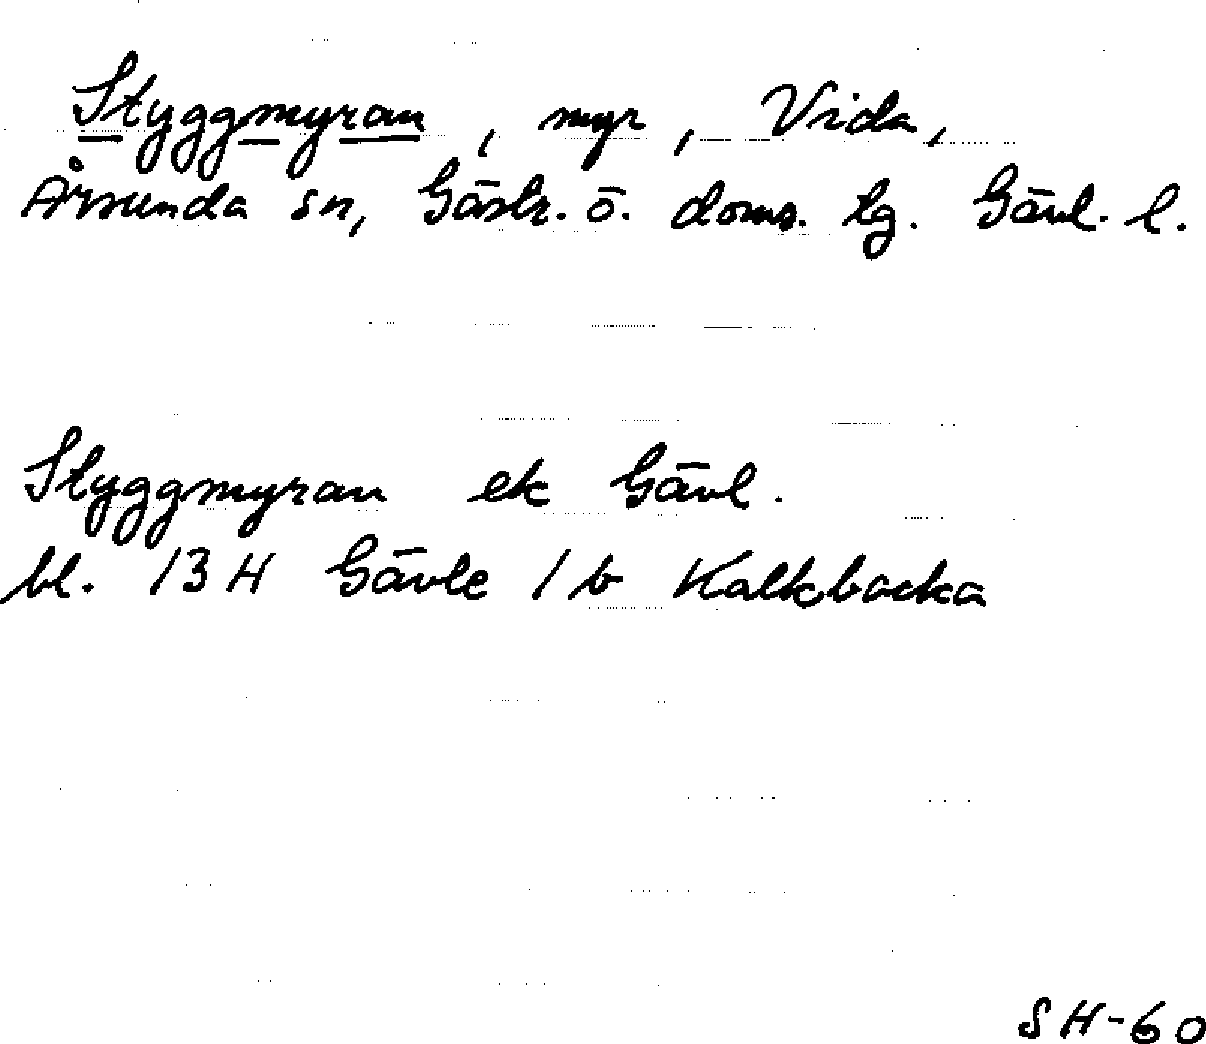 Styggmyran, myr, Vida,
Årsunda sn, Gästr. ö. doms. tg. Gävl. l.
Styggmyran ek Gävl.
bl. 13 H Gävle 1 b Kalkbacka
SH-60